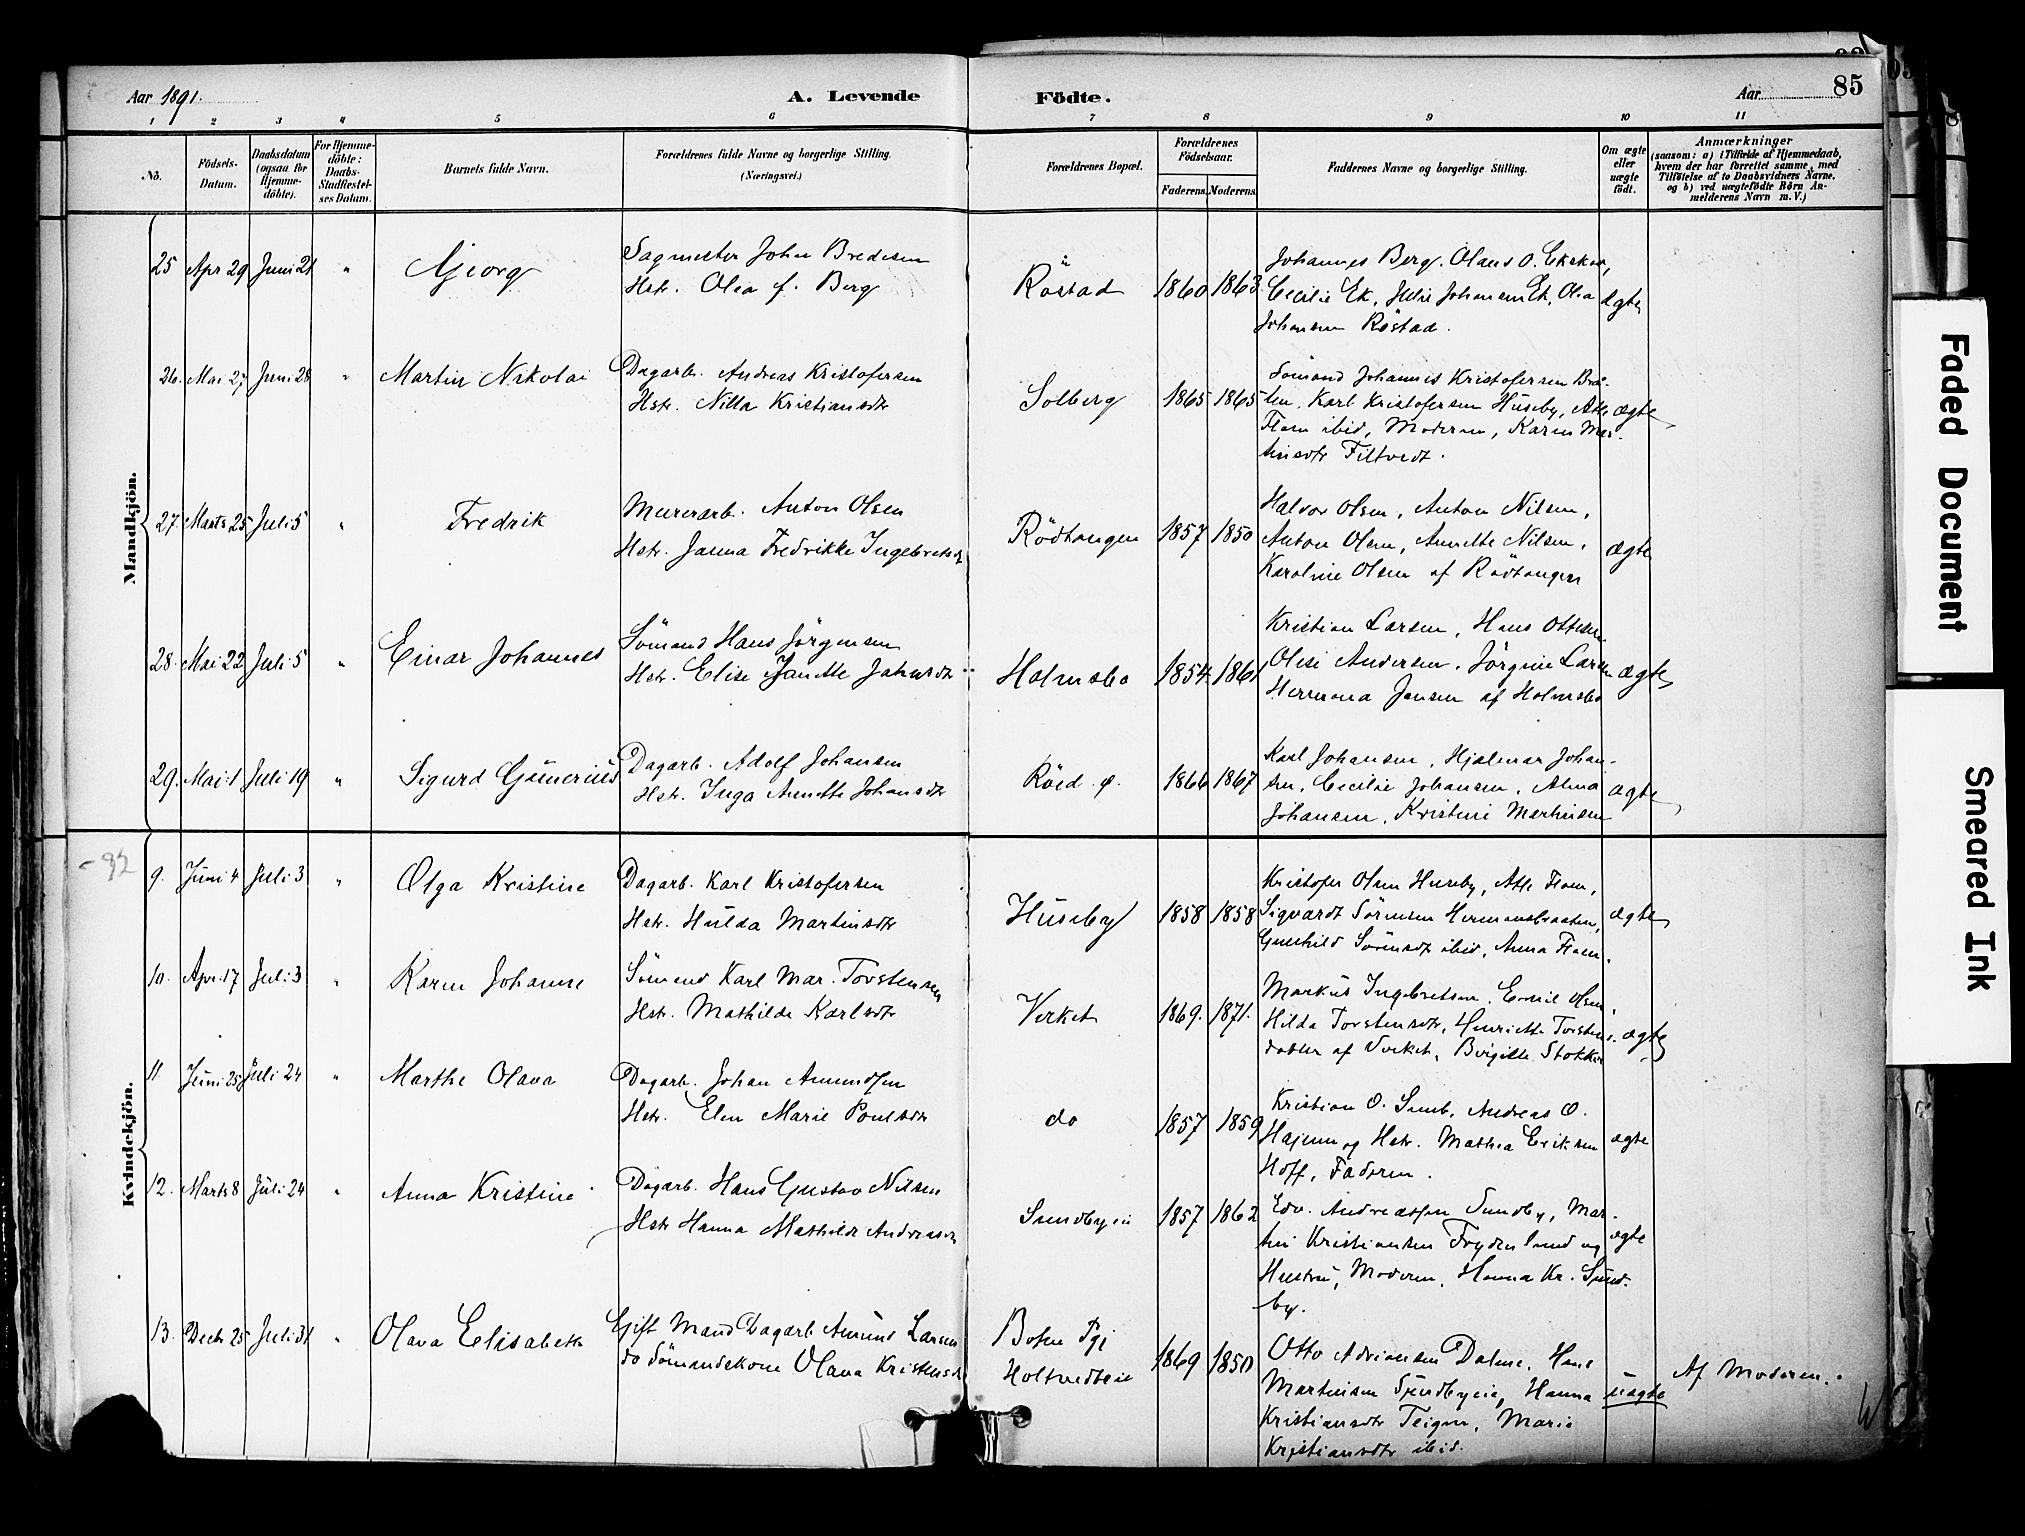 Aar 1891.
A. Levende Födte.
Aar
85
1 2 3 4 5 6 7 8 9 10 11
No.
Födsels-Datum.
Daabsdatum (ogsaa for Hjemme-döbte).
For Hjemme-döbte: Daabs-Stadfæstel-ses Datum.
Barnets fulde Navn.
Forældrenes fulde Navne og borgerlige Stilling.
(Næringsvei.)
Forældrenes Bopæl.
Forældrenes Födselsaar.
Faderens. Moderens.
Faddernes Navne og borgerlige Stilling.
Om ægte eller uægte födt.
Anmærkninger
(saasom: a) i Tilfælde af Hjemmedaab, hvem der har forrettet samme, med Tilföielse af to Daabsvidners Navne. og b) ved uægtefödte Börn Anmelderens Navn m. V.)
Mandkjön.
25 Apr 29 Juni 21 " Georg
Sagmester Johan Bredesen
Hstr. Olea f. Berg
Röstad 1860 1863
Johannes Berg. Olaus O. Ekskov,
Cecilie Ek, Helie Johansen Ek, Olea
Johansen Röstad.
ægte
26. Mai 27 Juni 28 " Martin Nikolai
Dagarb. Andreas Kristofersen
Hstr. Nilla Kristiansdtr
Solberg 1865 1865
Sömand Johannes Kristofersen Braa-
ten, Karl Kristofersen Huseby, Atle
Flom ibid, Moderen, Karen Mar-
tinsdtr Filtvedt.
ægte
27. Marts 25 Juli 5 " Fredrik
Murerarb. Anton Olsen
Hstr. Janna Fredrikke Ingebretsdt
Rödtangen 1857 1850
Halvor Olsen, Anton Nilsen,
Anton Olsen, Annette Nilsen,
Karoline Olsen af Rödtangen
ægte
28. Mai 22 Juli 5 " Einar Johannes
Sömand Hans Jörgensen
Hstr. Elise Janette Johnsdtr
Holmsbo 1854. 1861
Kristian Larsen, Hans Ottesen
Olise Andersen. Jörgine Larsen
Hermana Jensen af Holmsbo
ægte
29. Mai 1 Juli 19 " Sigurd Gunerius
Dagarb. Adolf Johansen
Hstr. Inga Annette Johansdtr
Röed. ø. 1866 1867
Karl Johansen, Hjalmar Johan-
sen, Cecilie Johansen, Alma
Johansen, Kristine Martinsen
ægte
- 92
Kvindekjön.
9. Juni 4 Juli 3 " Olga Kristine
Dagarb. Karl Kristofersen
Hstr. Hulda Martinsdtr
Huseby 1858 1858
Kristofer Olsen Huseby, Atle Flom,
Sigvardt Sörensen Hermansbraaten,
Gunhild Sörensdt ibid, Anna Flom.
ægte
10. Apr. 17 Juli 3 " Karen Johanne
Sömand Karl Mar. Torstensen
Hstr. Mathilde Karlsdtr
Verket 1869. 1871.
Markus Ingebretsen. Emil Olsen,
Hilda Torstensdtr, Henriette Torstens-
datter af Verket, Birgitte Stokker
ægte
11 Juni 25 Juli 24 " Marthe Olava
Dagarb. Johan Amundsen
Hstr. Elen Marie Poulsdtr
do 1857 1859
Kristian O. Sund, Andreas O.
Hajeum og Hstr. Mathea Eriksen
Hoff, Faderen.
ægte
12. Marts 8 Juli 24 " Anna Kristine
Dagarb. Hans Gustav Nilsen
Hstr Hanna Mathilde Andreasdt
Sundbyeie 1857 1862
Edv. Andreassen Sundby, Mar-
tin Kristiansen Frydenlund og
Hustru, Moderen, Hanna Kr. Sund-
by.
ægte
13. Decbr 25 Juli 31 " Olava Elisabeth
Gift Mand Dagarb Amund Larsen
do Sömandskone Olava Kristensdt
Botne Pgj
Holtvedteie
1869 1850
Otto Adriansen Dalene, Hans
Martinsen Sundbyeie, Hanna
Kristiansdtr Teigen, Marie
Kristiansdtr ibid.
uægte
Af Moderen.
Faded Document
Smeared Ink